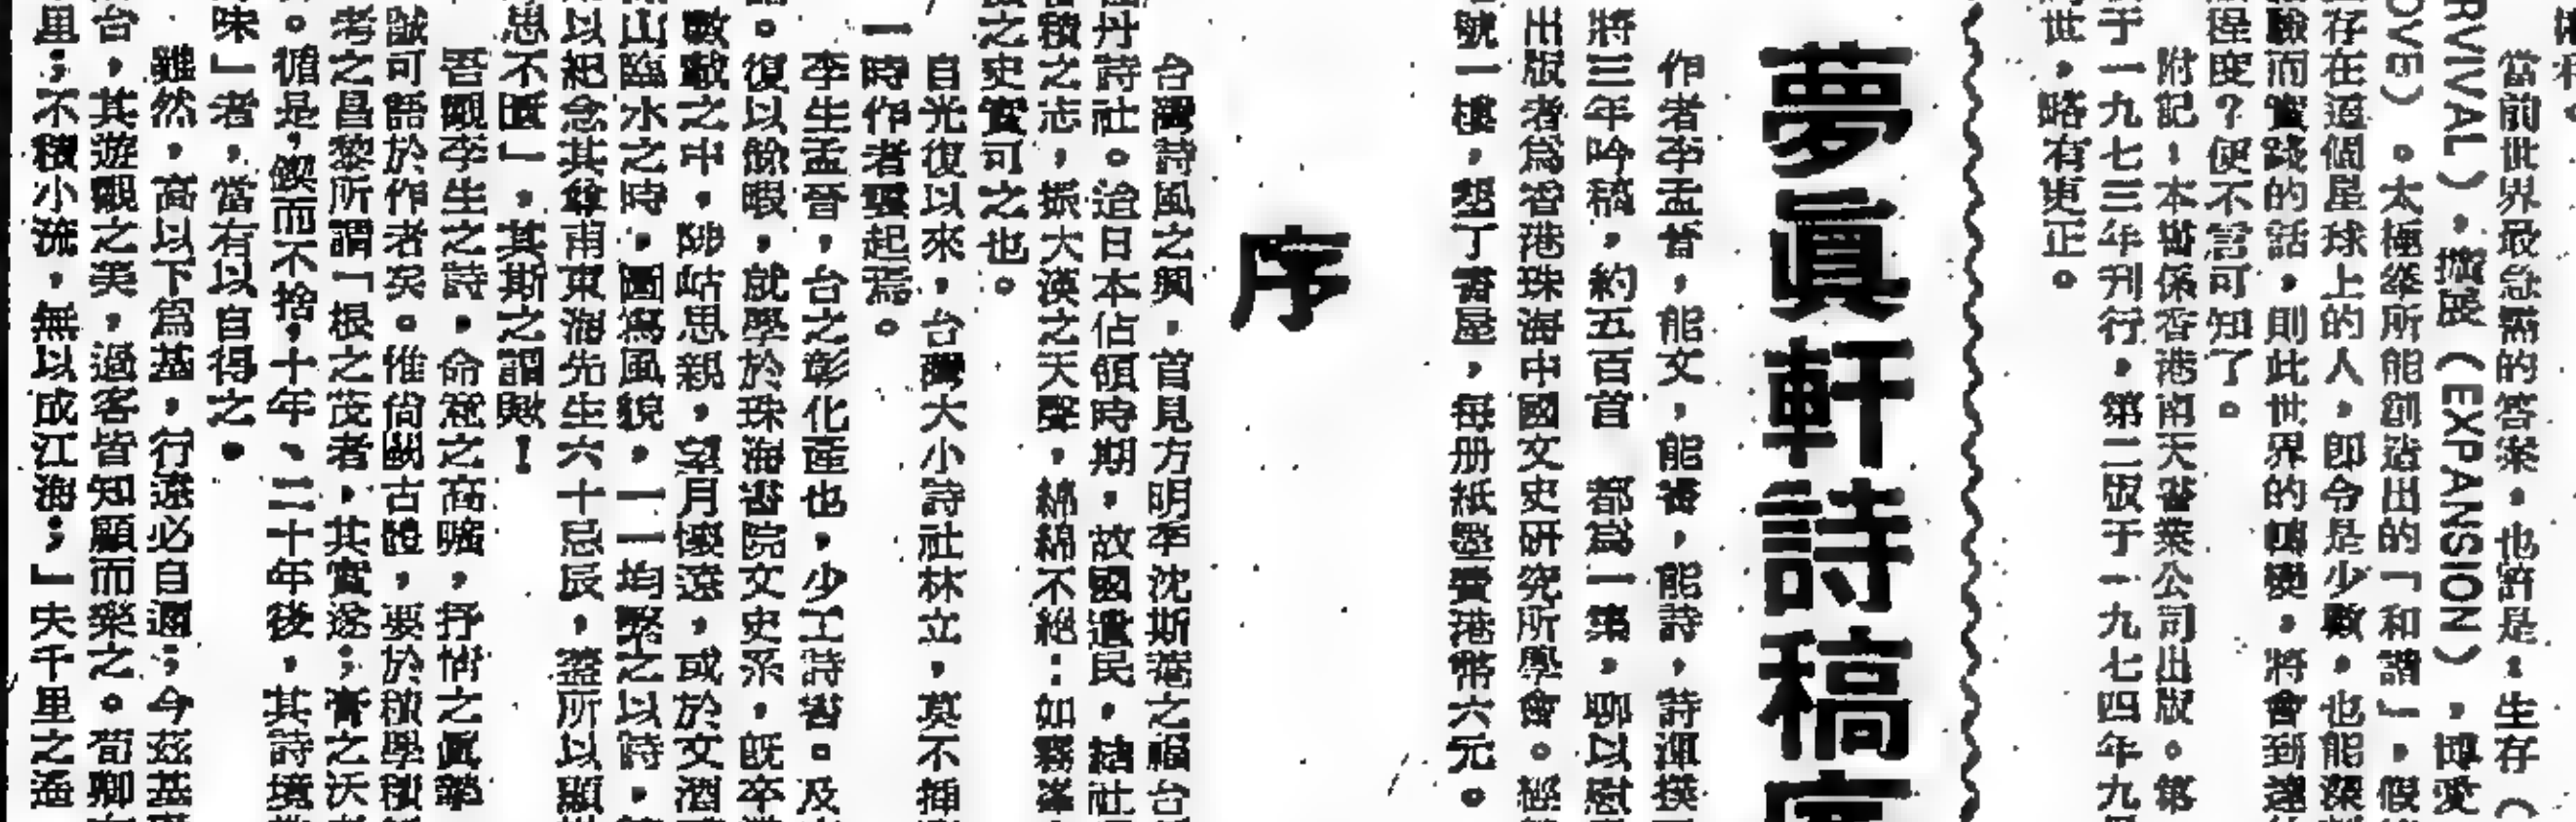 當前世界最急需的答案。也許是：生存（
RVIVAL）。擴展（EXPANSION）。博愛
OVE）。太極拳所能創造出的「和諧」。假
存在這個星球上的人，即令是少數，也能深
驗而實踐的話，則此世界的 將會到達
程度？便不言可知了。
附記：本書係香港南天書業公司出版。第
于一九七三年刊行，第二版于一九七四年九
世，略有更正。
夢眞軒詩稿
作者李孟晉，能文，能書，能詩，詩渾
將三年吟稿，約五百首 都爲一集，聊以
出版者爲香港珠海中國文史研究所學會。經
號一樓，墾丁書屋，每册紙墨費港幣六元。
序
台灣詩風之興，首見方明季沈斯菴之福台
丹詩社。洎日本佔領時期，故國遺民，結社
積之志，振大漢之天聲，綿綿不絕：如霧峯
之史實可之也。
自光復以來，台灣大小詩社林立，莫不
一時作者羣起焉。
李生孟晉，台之彰化產也，少工詩書。及
。復以餘暇，就學於珠海書院文史系，既卒
數載之中，陟岵思親，望月懷遠，或於文酒
山臨水之時，圖寫風貌，一一均繫之以詩，
以紀念其尊甫東海先生六十忌辰，蓋所以顯
思不匱」，其斯之謂歟！
吾觀李生之詩，命意之高曠，抒情之眞摯
可語於作者矣。惟尙 古體，要於積學
考之昌黎所謂「根之茂者，其實遂；膏之沃
。循是，鍥而不捨，十年、二十年後，其詩境
味」者，當有以自得之。
雖然，高以下爲基，行遠必自邇；今茲基
台，其遊觀之美，過客皆知顧而樂之。荀卿
里；不積小流，無以成江海；」夫千里之